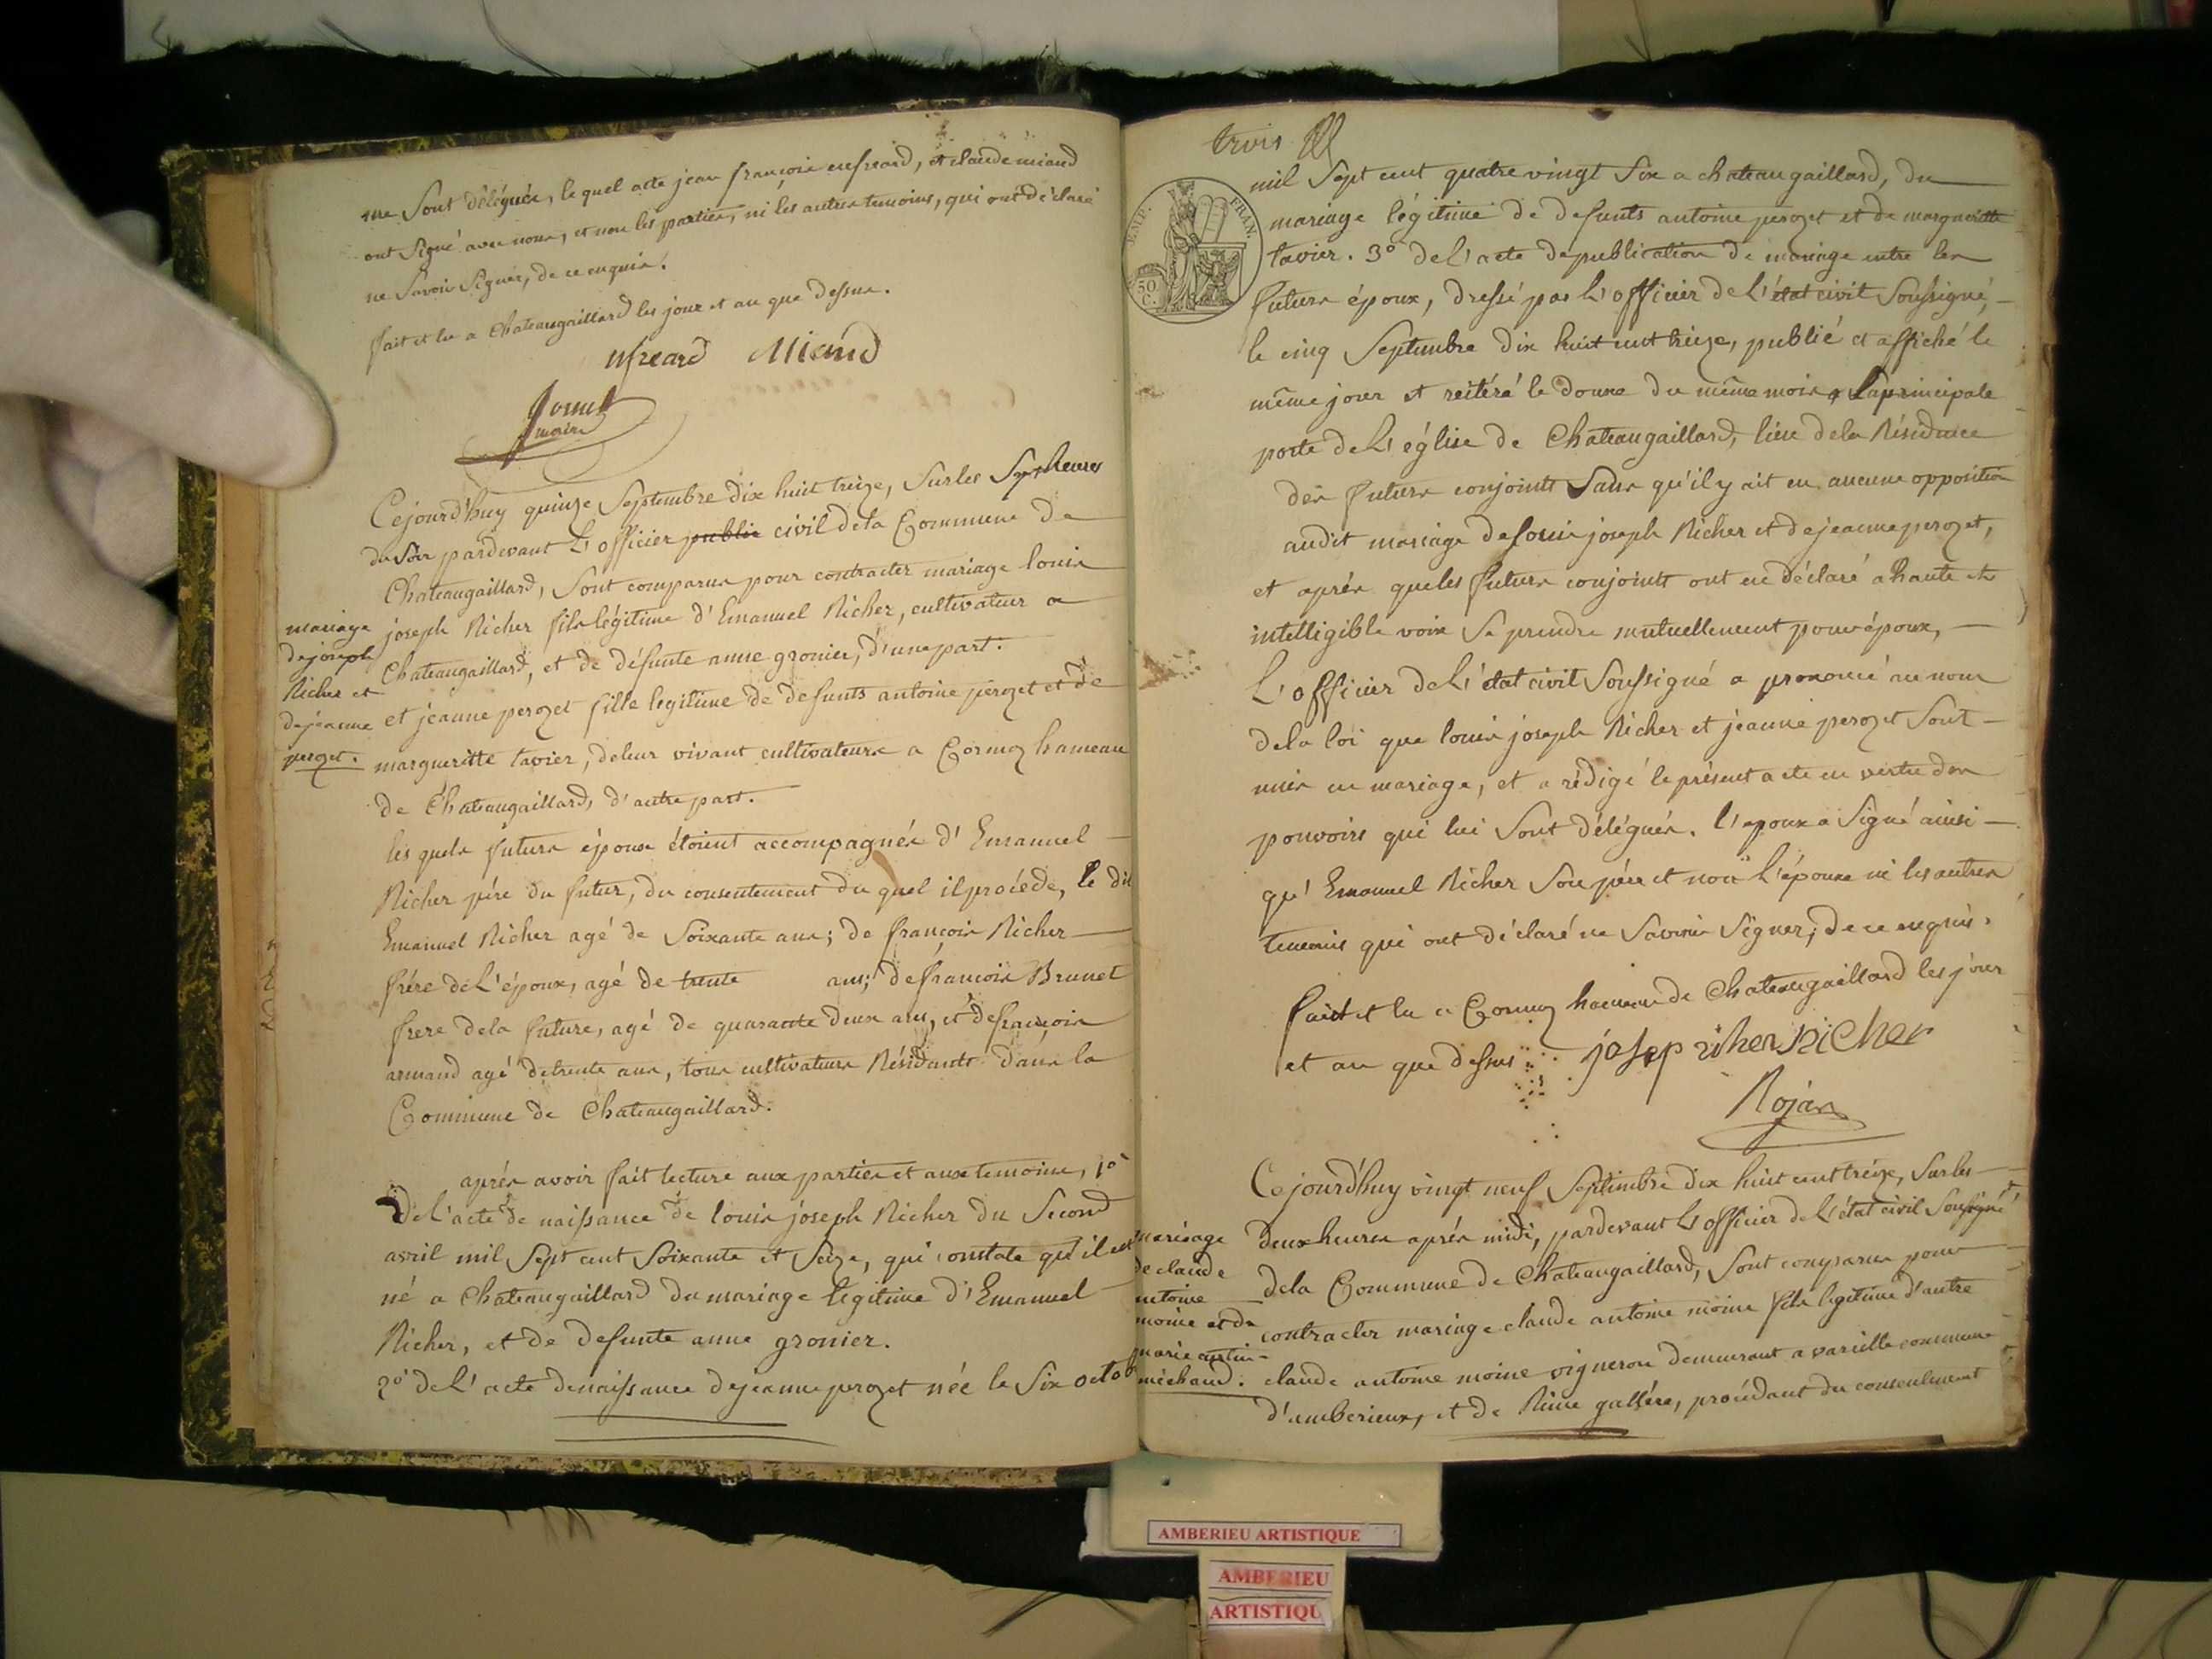 me sont délégués, le quel acte jean françois enfreard, et claude miand
ont signé avec nous, et non les parties, ni les autres temoins, qui ont déclaré
ne savoir signer, de ce enquis.
fait et lu a Chateaugaillard les jour et an que dessus.
nfreard Miand
maire
Cejourd'huy quinze Septembre dix huit treize, Sur les Sept heures
du Soir pardevant L'officier public civil dela Commune de
Chateaugaillard, Sont comparus pour contracter mariage louis
joseph Richer fils légitime d'Emanuel Richer, cultivateur a
Chateaugaillard, et de défunte anne gronier, d'une part.
et jeanne perozet fille legitime de defunts antoine perozet et de
margueritte tavier, deleur vivant cultivateurs a Cormoz hameau
de Chateaugaillard, d'autre part.
mariage
dejoseph
Richer et
dejeanne
perozet.
les quels futurs époux étoient accompagnés d'Emanuel
Richer père du futur, du consentement du quel il procéde, le dit
Emanuel Richer agé de Soixante ans; de françois Richer
frére de L'époux, agé de trente ans; de françois Brunet
frere dela future, agé de quarante deux ans, et defrançois
armand agé detrente ans, tous cultivateurs Résidants dans la
Commune de Chateaugaillard.
aprés avoir fait lecture aux parties et aux temoins, 1°
De L'acte de naissance de louis joseph Richer du Second
avril mil Sept cent Soixante et Seize, qui constate qu'il est
né a Chateaugaillard du mariage légitime d'Emanuel
Richer, et de defunte anne gronier.
2° de L'acte denaissance dejeanne perozet née le Six octob
trois
EMP. FRAN.
50 C.
mil Sept cent quatre vingt Six a chateaugaillard, du
mariage légitime de defunts antoine perozet et de margueritte
tavier. 3° de L'acte depublication de mariage entre les
futurs époux, dressé par L'officier de L'état civil Soussigné,
le cinq Septembre dix huit cent treize, publié et affiché le
même jour et reitéré le douze du même mois a la principale
porte de L'église de Chateaugaillard, lieu dela Résidence
des futurs conjoints Sans qu'il y ait eu aucune opposition
audit mariage de louis joseph Richer et dejeanne perozet,
et aprés que les futurs conjoints ont eu déclaré a haute et
intélligible voix Se prendre mutuellement pour époux,
L'officier de L'état civil Soussigné a prononcé au nom
dela loi que louis joseph Richer et jeanne perozet Sont
unis en mariage, et a rédigé le présent acte en vertu des
pouvoirs qui lui Sont délégués. l'epoux a Signé ainsi
qu'Emanuel Richer Son père et non L'épouse ni les autres
temoins qui ont déclaré ne Savoir Signer, de ce enquis.
fait et lu a Cormoz hameau de Chateaugaillard les jour
et an que dessus josep riher Richer
Rojan
Cejourd'huy vingt neuf Septembre dix huit cent treize, Sur les
deux heures aprés midi, pardevant L'officier de L'état civil Soussigné
dela Commune de Chateaugaillard, Sont comparus pour
contracter mariage claude antoine moine fils légitime d'autre
claude antoine moine vigneron demeurant a vareille commune
d'amberieux, et de Reine gallére, procédant du consentement
mariage
de claude
antoine
moine et de
marie
méchaud.
AMBERIEU ARTISTIQUE
AMBERIEU
ARTISTIQU